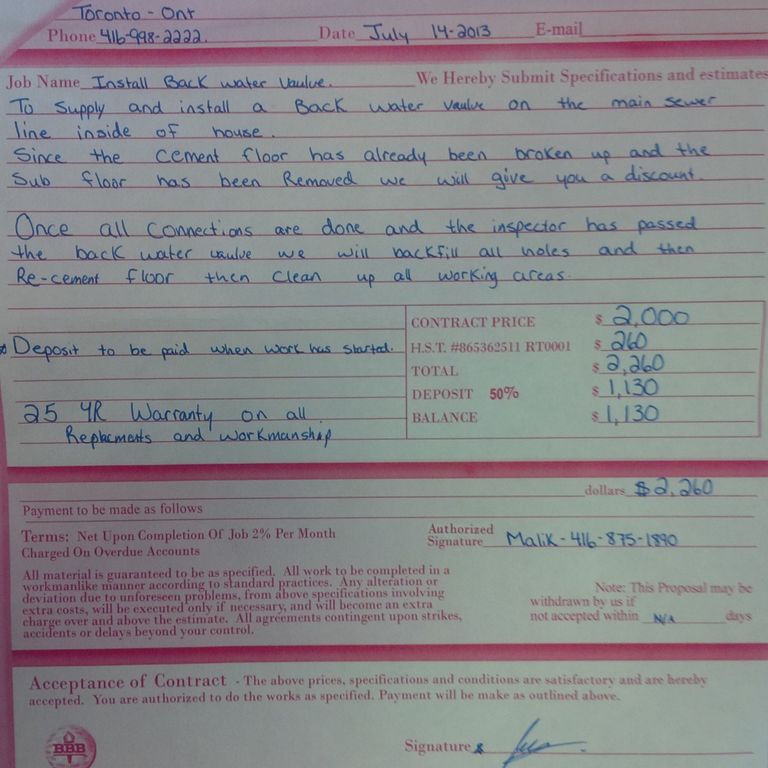 Toronto - Ont
Phone 416-998-2222. Date July 14-2013 E-mail
Job Name Install Back water Vaulve. We Hereby Submit Specifications and estimates
To Supply and install a Back water vaulve on the main sewer
line inside of house.
Since the cement floor has already been broken up and the
Sub floor has been Removed we will give you a discount.
Once all connections are done and the inspector has passed
the back water vaulve we will backfill all holes and then
Re-cement floor then clean up all working areas.
CONTRACT PRICE $ 2,000
Deposit to be paid when work has started. H.S.T. #865362511 RT0001 $ 260
TOTAL $ 2,260
DEPOSIT 50% $ 1,130
25 YR Warranty on all BALANCE $ 1,130
Replacments and workmanship
dollars $2,260
Payment to be made as follows
Terms: Net Upon Completion Of Job 2% Per Month
Charged On Overdue Accounts
Authorized
Signature Malik - 416-875-1890
All material is guaranteed to be as specified. All work to be completed in a
workmanlike manner according to standard practices. Any alteration or
deviation due to unforeseen problems, from above specifications involving
extra costs, will be executed only if necessary, and will become an extra
charge over and above the estimate. All agreements contingent upon strikes,
accidents or delays beyond your control.
Note: This Proposal may be
withdrawn by us if
not accepted within N/A days
Acceptance of Contract - The above prices, specifications and conditions are satisfactory and are hereby
accepted. You are authorized to do the works as specified. Payment will be make as outlined above.
BBB
Signature